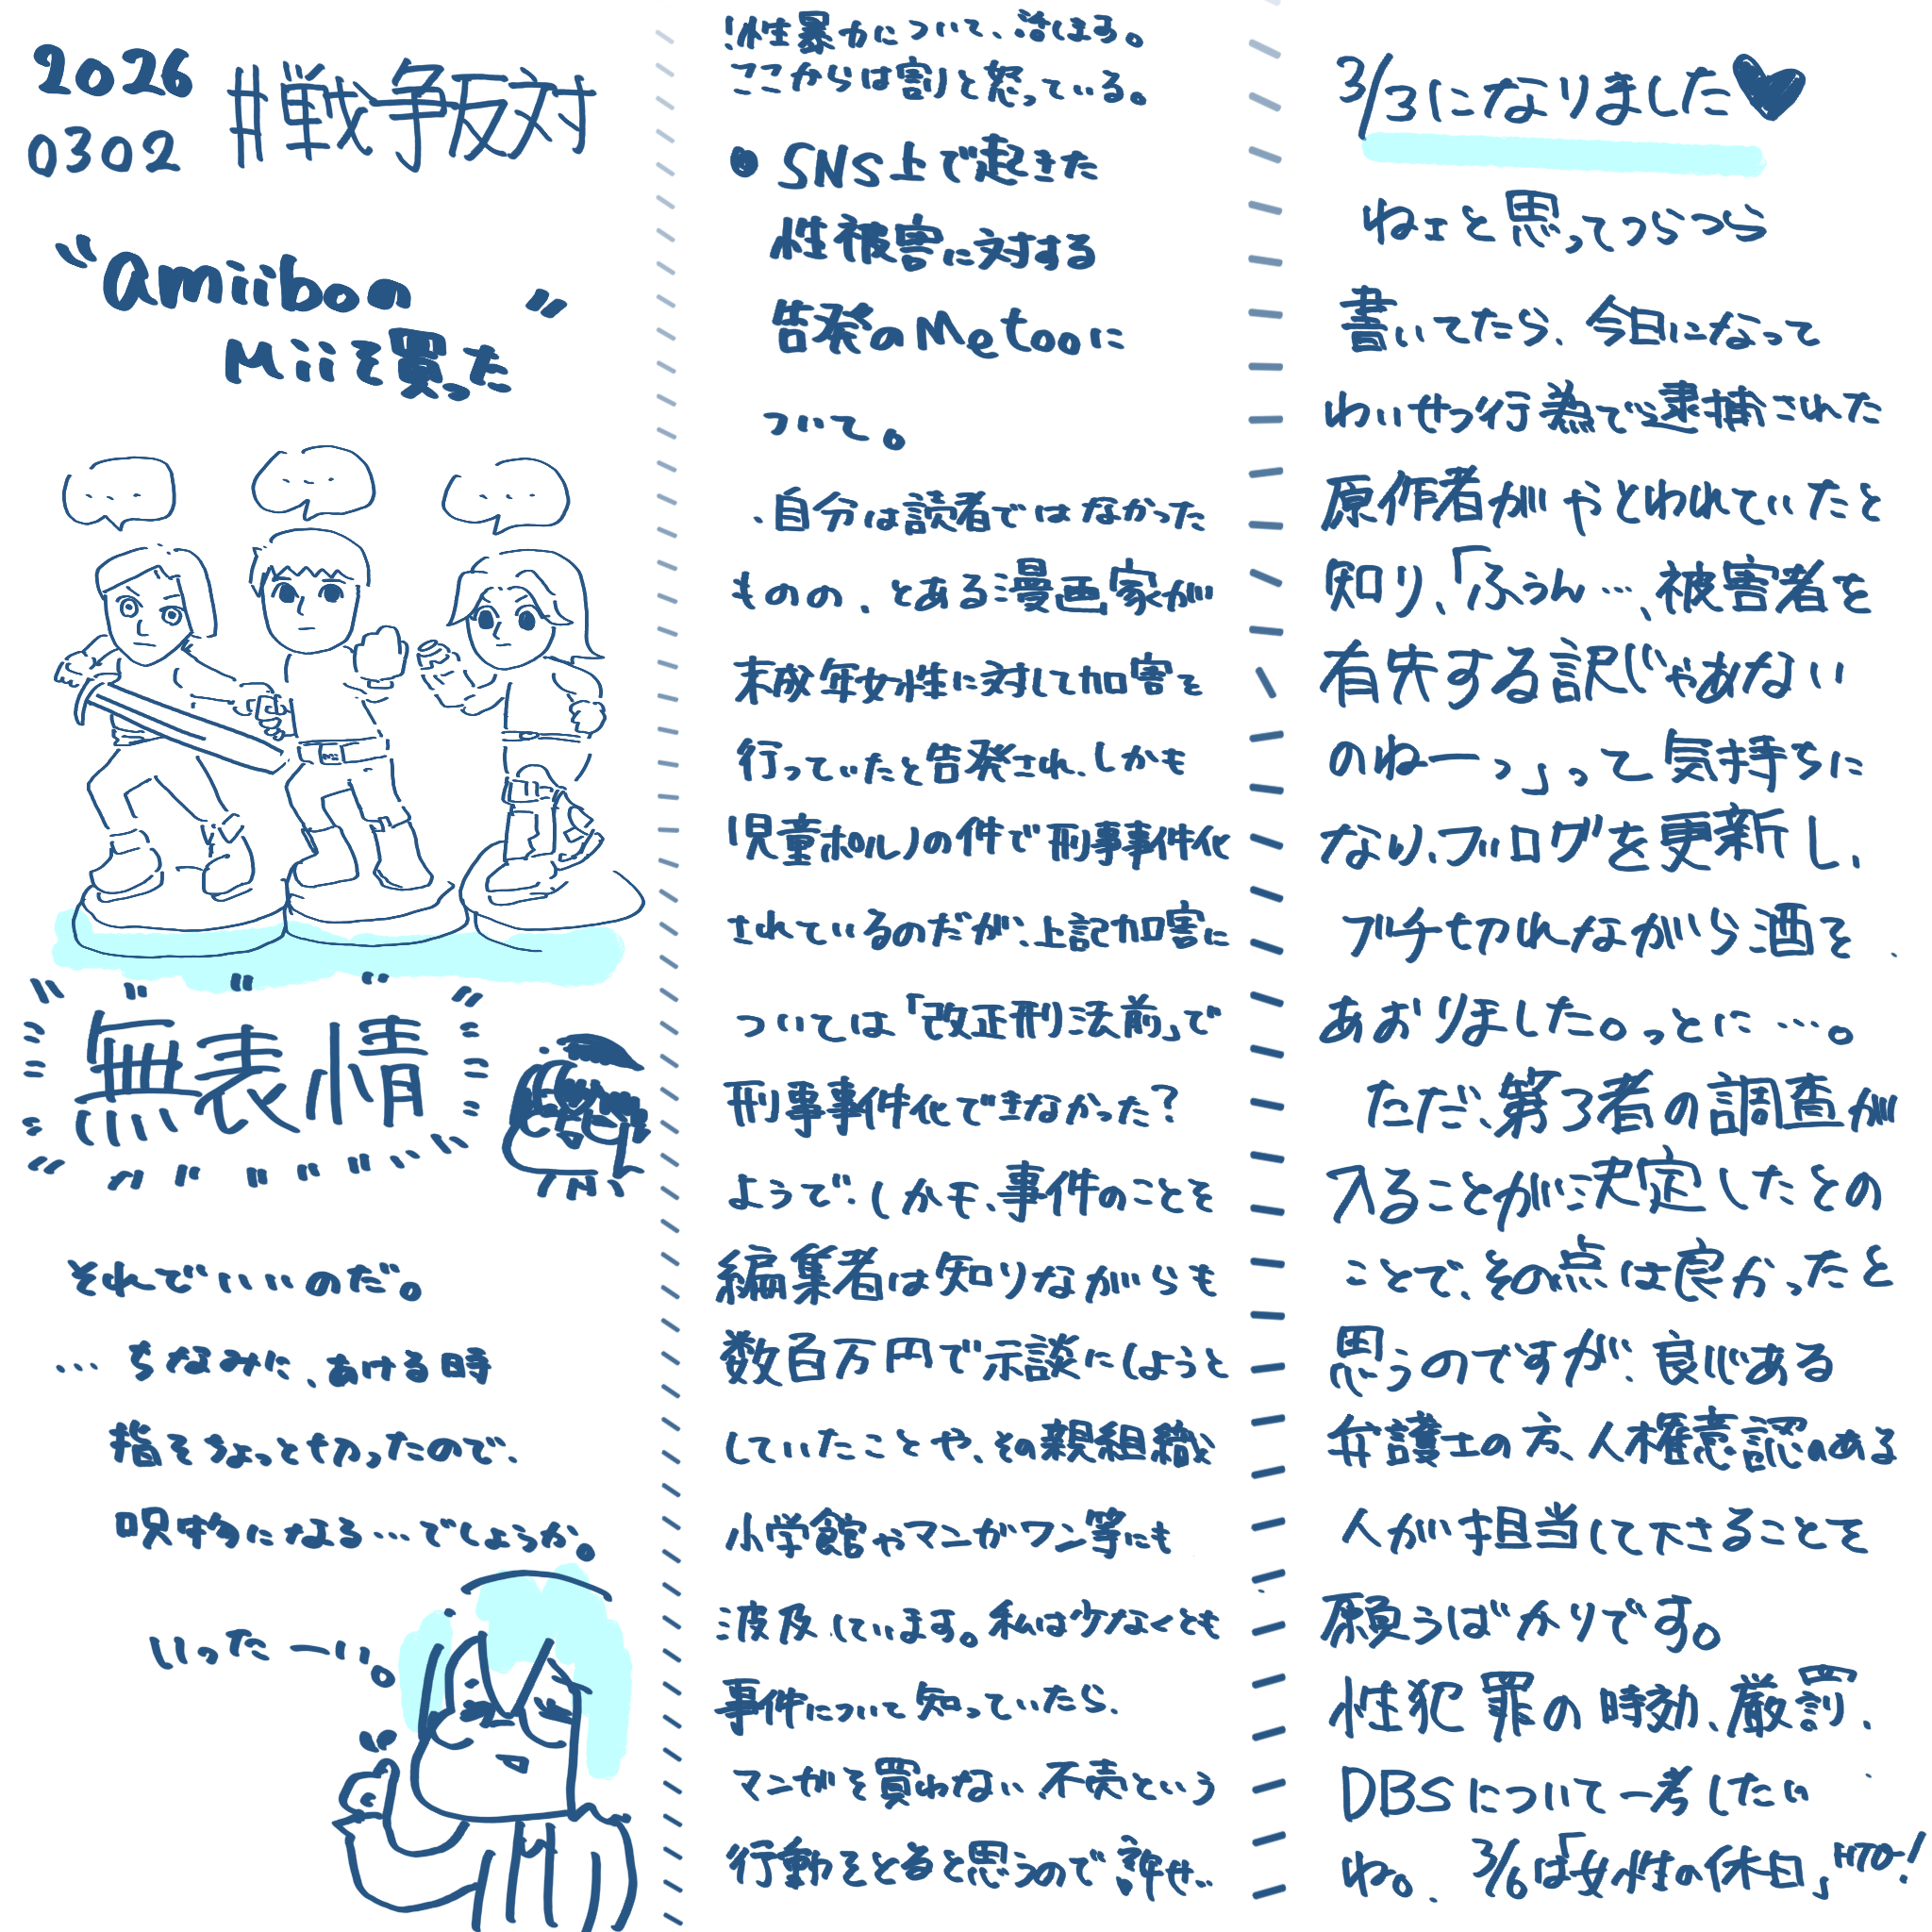 2026
0302
#戦争反対
"amiiboの
Miiを買った"
...
...
...
無表情
それでいいのだ。
…ちなみに、あける時
指をちょっと切ったので、
呪物になる…でしょうか。
いったーい。
!性暴力について、話します。
ここからは割と怒っている。
●SNS上で起きた
性被害に対する
告発のMetooに
ついて。
、自分は読者ではなかった
ものの、とある漫画家が
未成年女性に対して加害を
行っていたと告発され、しかも
児童ポルノの件で刑事事件化
されているのだが、上記加害に
ついては「改正刑法前」で
刑事事件化できなかった?
ようで、しかも、事件のことを
編集者は知りながらも
数百万円で示談にしようと
していたことや、その親組織
小学館やマンガワン等にも
波及しています。私は少なくとも
事件について知っていたら、
マンガを買わない、不売という
行動をとると思うので許せ..
3/3になりました♥
ねェと思ってつらつら
書いてたら、今日になって
わいせつ行為で逮捕された
原作者がやとわれていたと
知り、「ふぅん…、被害者を
有失する訳じゃあない
のねーっ」って気持ちに
なり、ブログを更新し、
ブチ切れながら酒を
あおりました。っとに…。
ただ、第3者の調査が
入ることが決定したとの
ことで、その点は良かったと
思うのですが、良心ある
弁護士の方、人権意認のある
人が担当して下さることを
願うばかりです。
性犯罪の時効、厳罰、
DBSについて一考したい
ね。 3/6は「女性の休日」